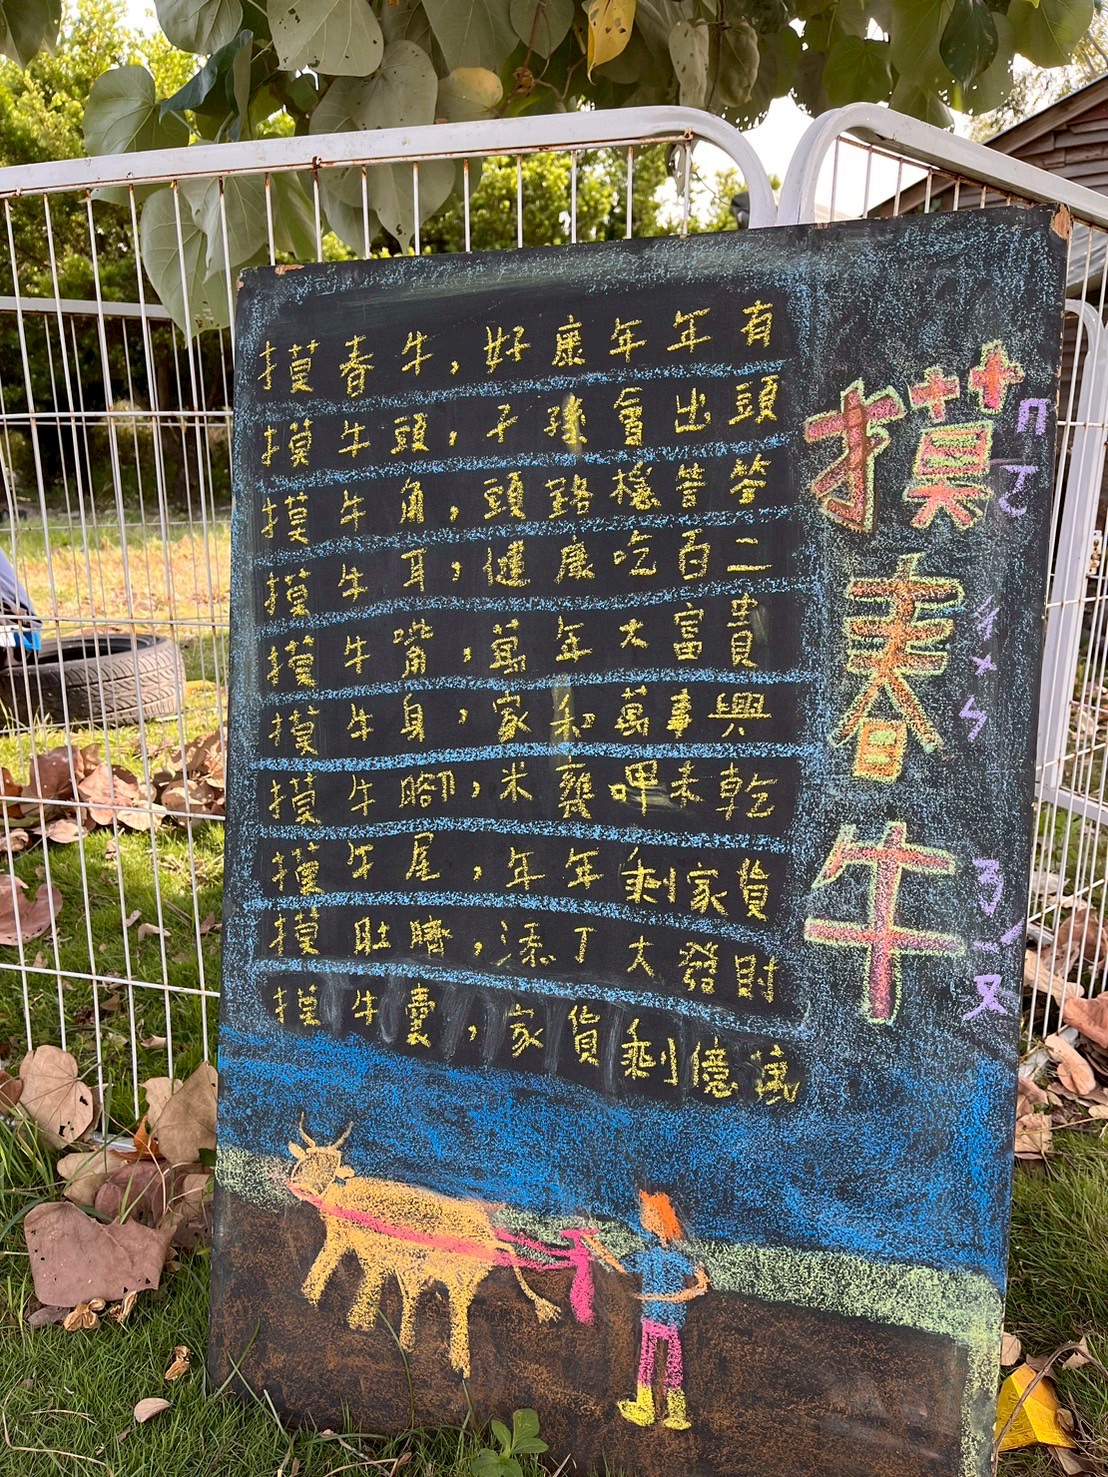 摸春牛
ㄇㄛ ㄔㄨㄣ ㄋㄧㄡˊ
摸春牛，好康年年有
摸牛頭，子孫會出頭
摸牛角，頭路穩答答
摸牛耳，健康吃百二
摸牛嘴，萬年大富貴
摸牛身，家和萬事興
摸牛腳，米甕呷未乾
摸牛尾，年年剩家貨
摸肚臍，添丁大發財
摸牛囊，家貨剩億萬